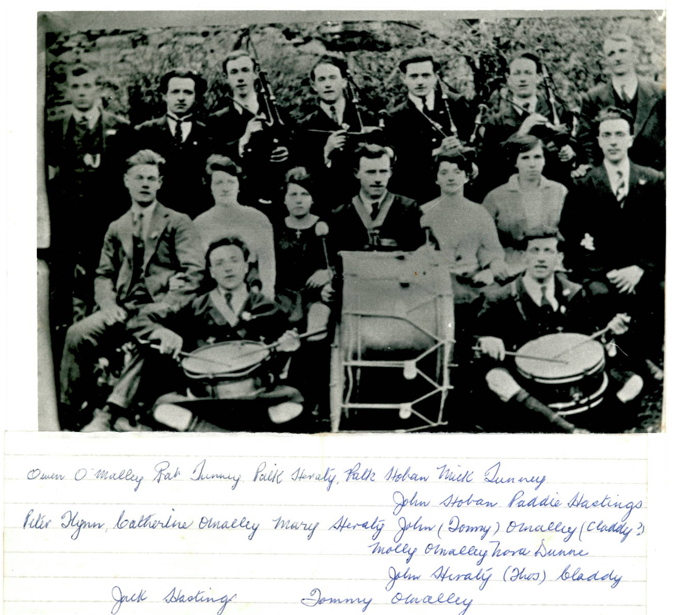 Owen O'Malley Pat Tunney Paik Heraty, Patk Hoban Mick Tunney
John Hoban Paddie Hastings
Peter Flynn, Catherine Omalley Mary Heraty John (Tommy) Omalley (Claddy?)
Molly Omalley Nora Dunne
John Heraty (Thos) Claddy
Jack Hastings Tommy Omalley